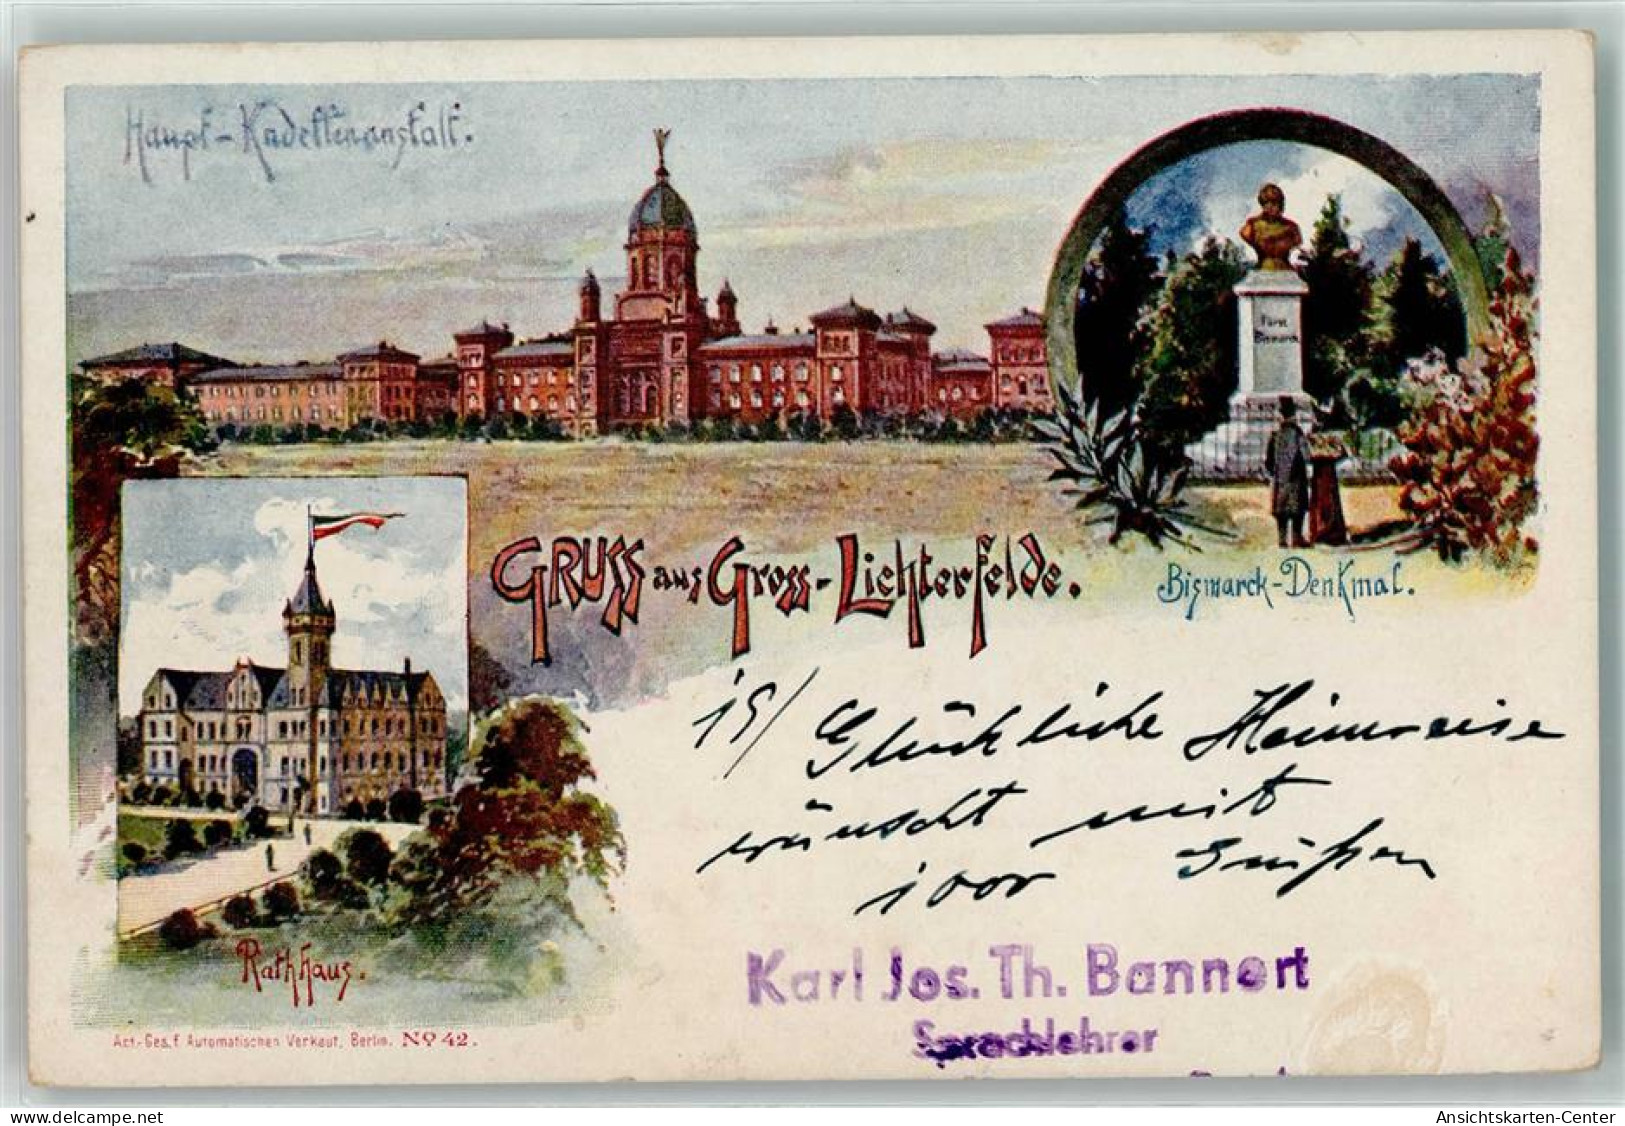 Haupt-Kadettenanstalt.
Fürst
Bismarck
GRUSS aus Gross-Lichterfelde.
Bismarck-Denkmal.
19/ Glückliche Heimreise
wünscht mit
Grüßen
Rathhaus.
Karl Jos. Th. Bannert
Sprachlehrer
Act.-Ges. f. Automatischen Verkauf, Berlin. No 42.
Ansichtskarten-Center